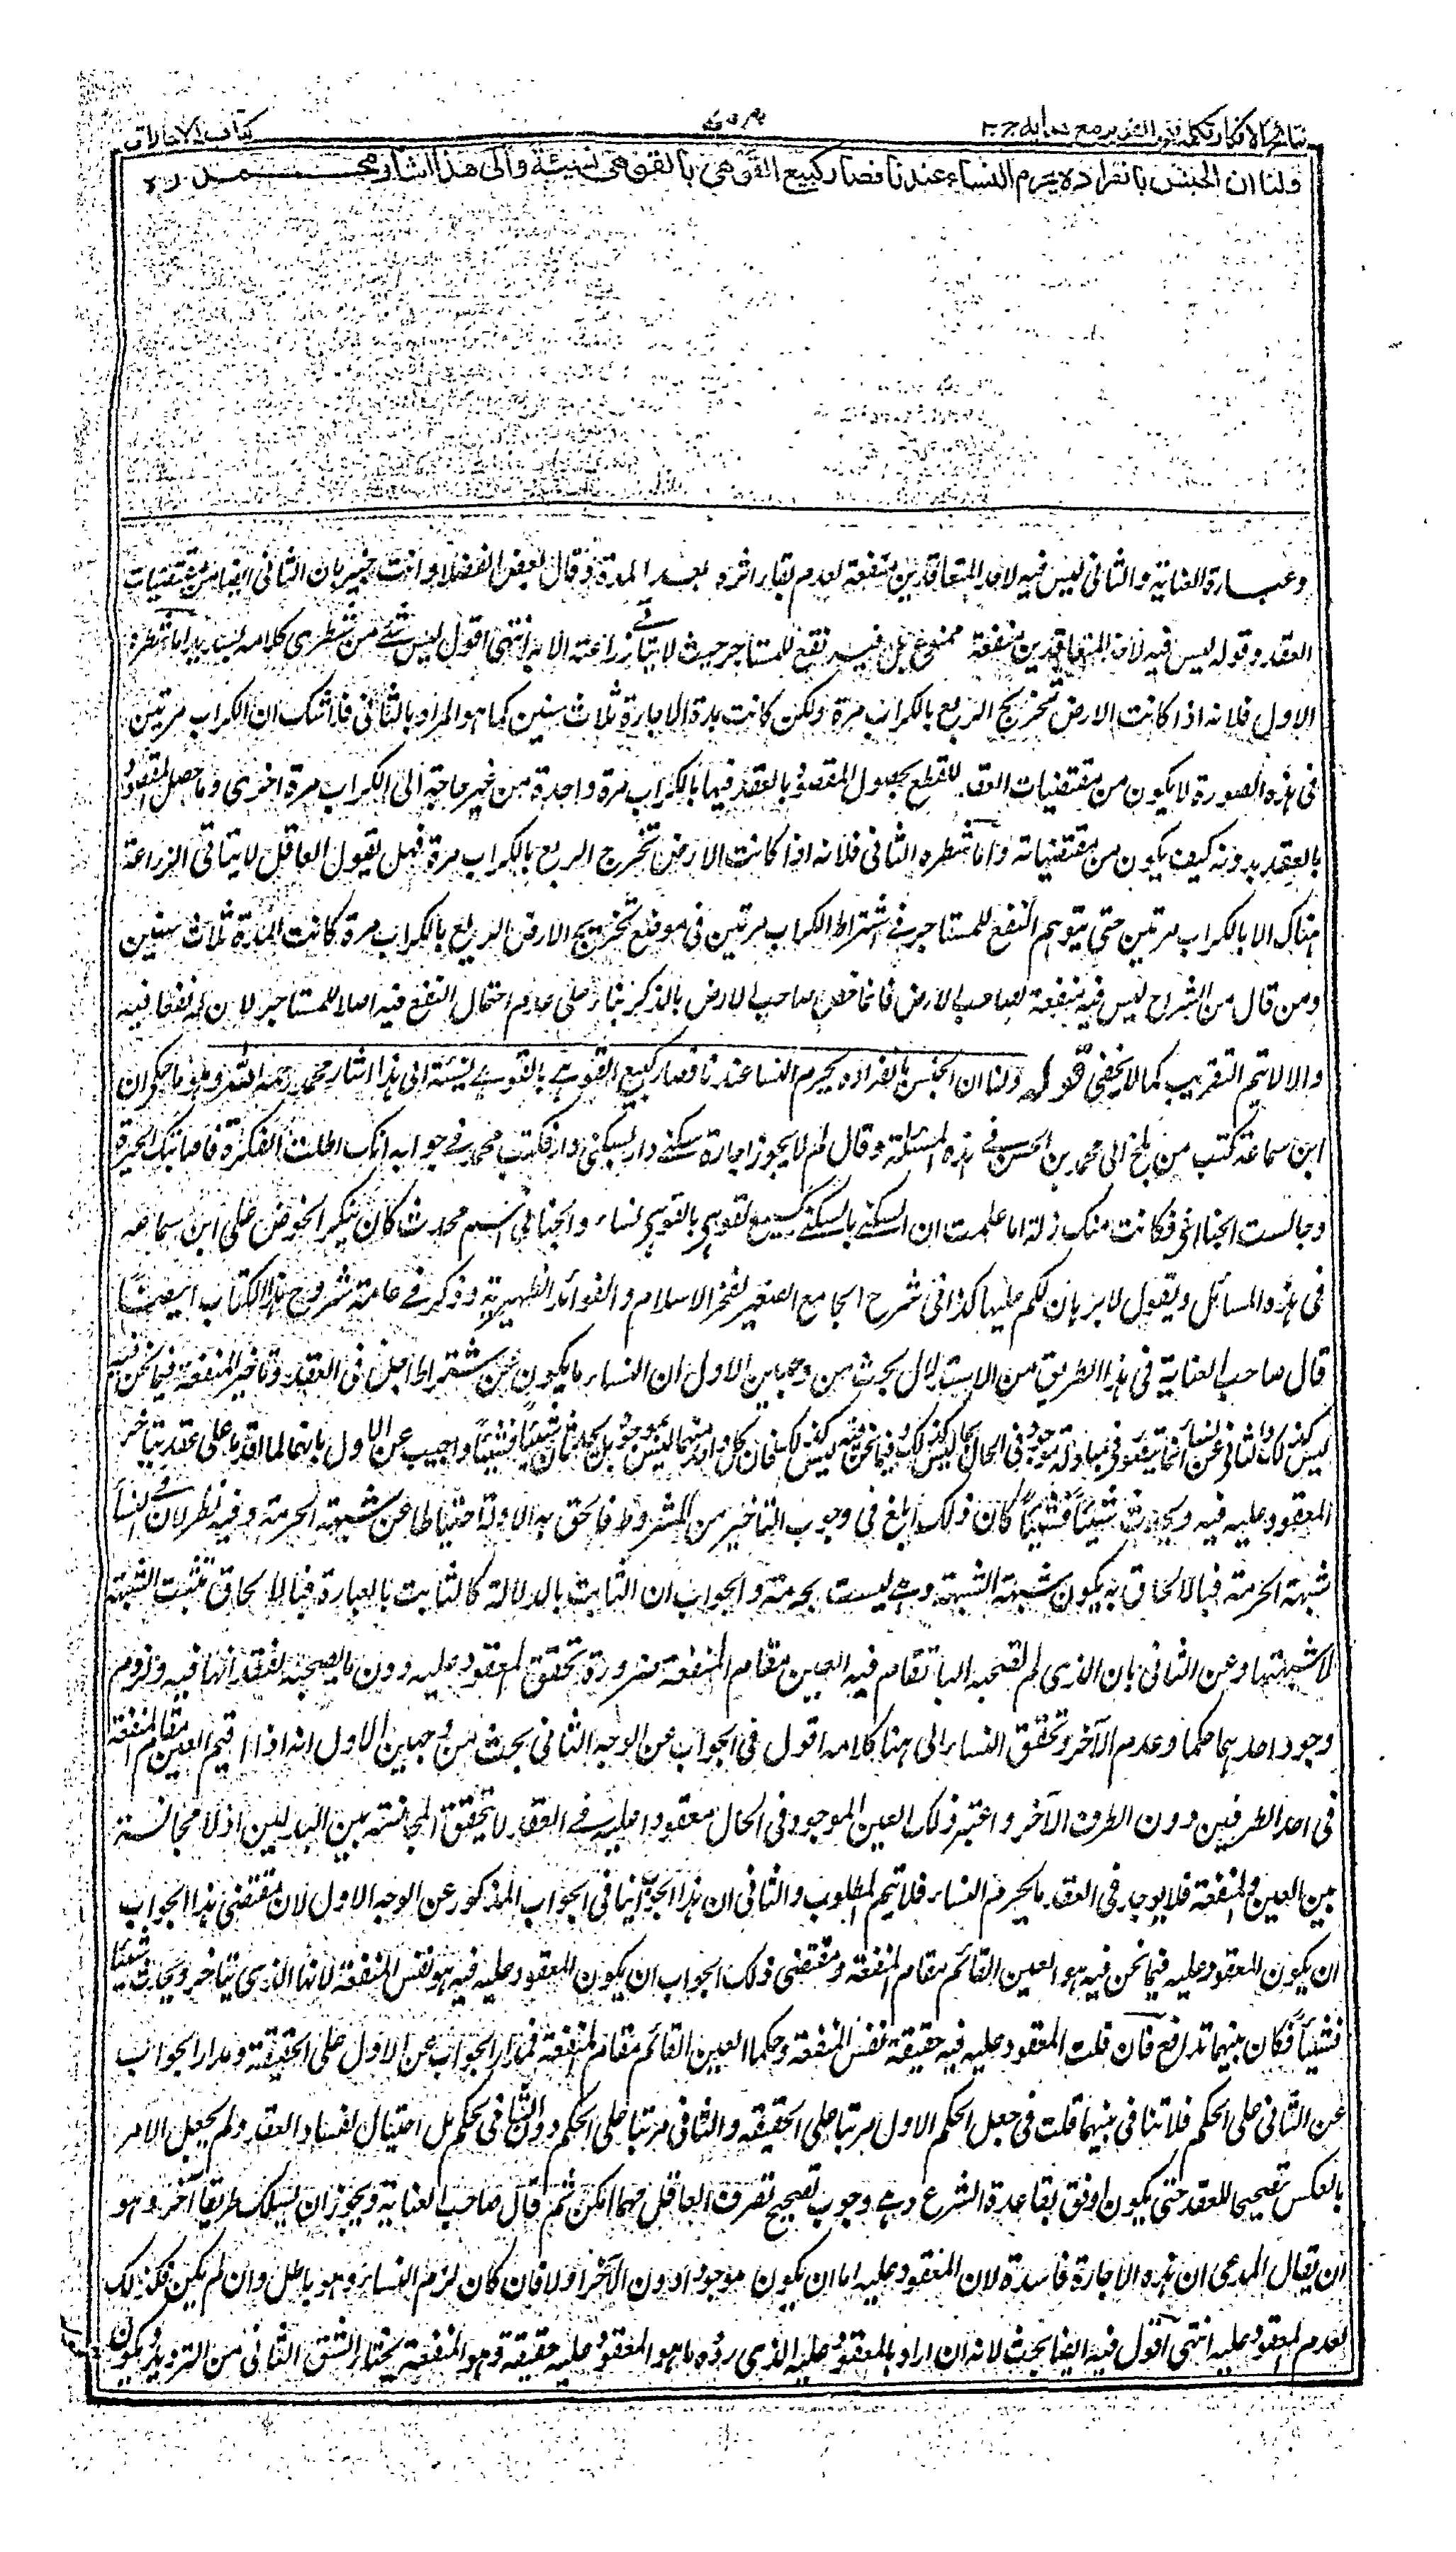 نتائج الافكار تكملة فتح القدير مع هدايه ج ٣
كتاب الاجارات
ولنا ان الجنس بانفراده يحرم النساء عندنا فصار كبيع القوهى بالقوهى نسيئة والى هذا اشار محمد ره
وعبارة العناية والثانى ليس فيه لاحد المتعاقدين منفعة لعدم بقاء اثره بعد المدة وقال بعض الفضلاء وانت خبير بان الثانى ايضا من مقتضيات
العقد وقوله ليس فيه لاحد المتعاقدين منفعة ممنوع بل فيه نفع للمستاجر حيث لا يتأتى زراعته الا به انتهى اقول ليس شئ من شطرى كلامه بسديد اما شطره
الاول فلانه اذا كانت الارض تخرج الريع بالكراب مرة ولكن كانت مدة الاجارة ثلاث سنين كما هو المراد بالثانى فلا شك ان الكراب مرتين
فى هذه الصورة لا يكون من مقتضيات العقد للقطع بحصول المقصود بالعقد فيها بالكراب مرة واحدة من غير حاجة الى الكراب مرة اخرى وما حصل المقصود
بالعقد بدونه كيف يكون من مقتضياته واما شطره الثانى فلانه اذا كانت الارض تخرج الريع بالكراب مرة فهل يقول العاقل لا يتأتى الزراعة
هناك الا بالكراب مرتين حتى يتوهم النفع للمستاجر فى اشتراط الكراب مرتين فى موضع تخرج الارض الريع بالكراب مرة كانت المدة ثلاث سنين
ومن قال من الشراح ليس فيه منفعة لصاحب الارض فانما خص صاحب الارض بالذكر بناء على عدم احتمال النفع فيه اصلا للمستاجر لا ان له نفعا فيه
والا لا يتم التقريب كما لا يخفى قوله ولنا ان الجنس بانفراده يحرم النسا عندنا فصار كبيع القوهى بالقوهى نسيئة الى هذا اشار محمد رحمه الله وهو ما حكى ان
ابن سماعة كتب من بلخ الى محمد بن الحسن فى هذه المسئلة وقال لم لا يجوز اجارة سكنى دار بسكنى دار فكتب محمد فى جوابه انك اطلت الفكرة فاصابتك الحيرة
وجالست الحنائى فكانت منك زلة اما علمت ان السكنى بالسكنى كبيع القوهى بالقوهى نساء والحنائى اسم محدث كان ينكر الخوض على ابن سماعه
فى هذه المسائل ويقول لا برهان لكم عليها كذا فى شرح الجامع الصغير لفخر الاسلام والفوائد الظهيرية وذكر فى عامة شروح هذا الكتاب ايضا
قال صاحب العناية فى هذا الطريق من الاستدلال بحث من وجهين الاول ان النساء ما يكون عن اشتراط اجل فى العقد وتاخير المنفعة فيما نحن فيه
ليس كذلك والثانى ان النسأ انما يتصور فى مبادلة موجود فى الحال بما ليس كذلك وفيما نحن فيه ليس كذلك فان كل واحد منهما ليس بموجود بل يحدثان شيئا فشيئا واجيب عن الاول بانهما لما اقدما على عقد يتاخر
المعقود عليه فيه ويحدث شيئا فشيئا كان ذلك ابلغ فى وجوب التاخير من المشروط فالحق به دلالة احتياطا عن شبهة الحرمة وفيه نظر لان فى النسأ
شبهة الحرمة فبالالحاق به يكون شبهة الشبهة وهى ليست بمحرمة والجواب ان الثابت بالدلالة كالثابت بالعبارة فبالالحاق تثبت الشبهة
لا شبهتها وعن الثانى بان الذى لم تصحبه الباء تقام فيه العين مقام المنفعة ضرورة تحقق المعقود عليه دون ما يصحبه لفقدانها فيه ولزوم
وجود احدهما حكما وعدم الآخر وتحقق النساء الى هنا كلامه اقول فى الجواب عن الوجه الثانى بحث من وجهين الاول انه اذا اقيم العين مقام المنفعة
فى احد الطرفين دون الطرف الآخر واعتبر ذلك العين الموجود فى الحال معقودا عليه فى العقد لا يتحقق المجانسة بين البدلين اذ لا مجانسة
بين العين والمنفعة فلا يوجد فى العقد ما يحرم النساء فلا يتم المطلوب والثانى ان هذا الجواب ينافى الجواب المذكور عن الوجه الاول لان مقتضى هذا الجواب
ان يكون المعقود عليه فيما نحن فيه هو العين القائم مقام المنفعة ومقتضى ذلك الجواب ان يكون المعقود عليه فيه هو نفس المنفعة لانها الذى يتاخر ويحدث شيئا
فشيئا فكان بينهما تدافع فان قلت المعقود عليه فيه حقيقة نفس المنفعة وحكما العين القائم مقام المنفعة فمدار الجواب عن الاول على الحقيقة ومدار الجواب
عن الثانى على الحكم فلا تنافى بينهما قلت فى جعل الحكم الاول مرتبا على الحقيقة والثانى مرتبا على الحكم دون الثانى تحكم بل احتيال لفساد العقد ولم يجعل الامر
بالعكس تصحيحا للعقد حتى يكون اوفق بقاعدة الشرع وهى وجوب تصحيح تصرف العاقل مهما امكن ثم قال صاحب العناية ويجوز ان يسلك طريقا آخر وهو
ان يقال المدعى ان هذه الاجارة فاسدة لان المعقود عليه اما ان يكون موجودا دون الآخر اولا فان كان لزم النساء وهو باطل وان لم يكن فكذلك
لعدم المعقود عليه انتهى اقول فيه ايضا بحث لانه ان اراد بالمعقود عليه الذى ردده ما هو المعقود عليه حقيقة وهو المنفعة يختار الشق الثانى من الترديد ويكون